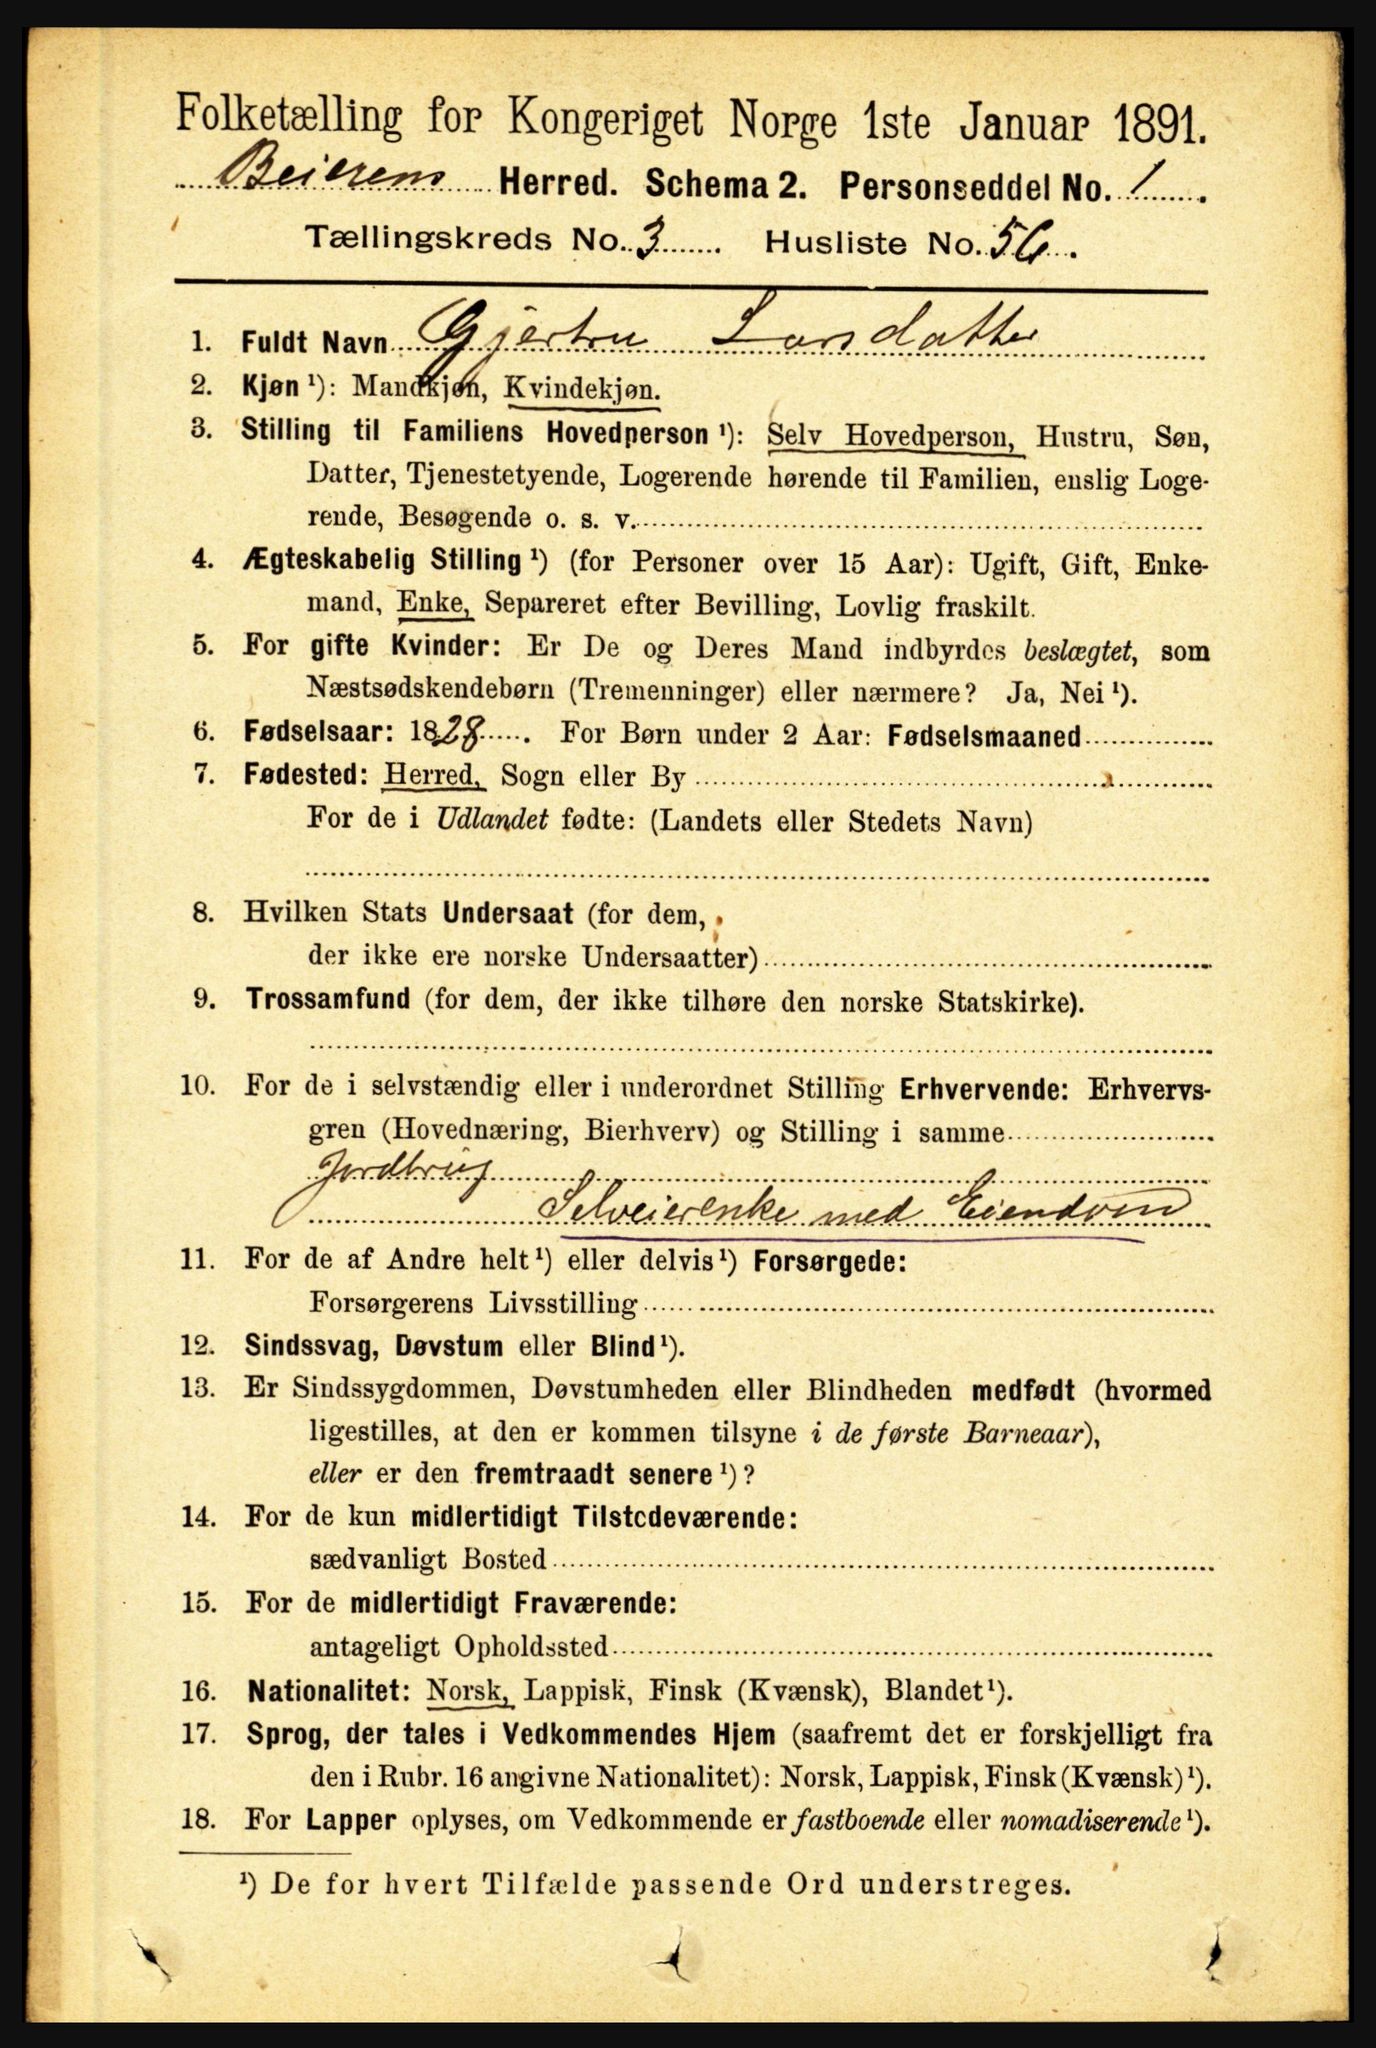 Folketælling for Kongeriget Norge 1ste Januar 1891.
Beierens Herred. Schema 2. Personseddel No. 1.
Tællingskreds No. 3 Husliste No. 56.
1. Fuldt Navn Gjertru Larsdatter
2. Kjøn ¹): Mandkjøn, Kvindekjøn.
3. Stilling til Familiens Hovedperson ¹): Selv Hovedperson, Hustru, Søn,
Datter, Tjenestetyende, Logerende hørende til Familien, enslig Loge-
rende, Besøgende o. s. v.
4. Ægteskabelig Stilling ¹) (for Personer over 15 Aar): Ugift, Gift, Enke-
mand, Enke, Separeret efter Bevilling, Lovlig fraskilt.
5. For gifte Kvinder: Er De og Deres Mand indbyrdes beslægtet, som
Næstsødskendebørn (Tremenninger) eller nærmere? Ja, Nei ¹).
6. Fødselsaar: 1828. For Børn under 2 Aar: Fødselsmaaned
7. Fødested: Herred, Sogn eller By
For de i Udlandet fødte: (Landets eller Stedets Navn)
8. Hvilken Stats Undersaat (for dem,
der ikke ere norske Undersaatter)
9. Trossamfund (for dem, der ikke tilhøre den norske Statskirke).
10. For de i selvstændig eller i underordnet Stilling Erhvervende: Erhvervs-
gren (Hovednæring, Bierhverv) og Stilling i samme
Jordbrug
Selveierenke med Eiendom
11. For de af Andre helt ¹) eller delvis ¹) Forsørgede:
Forsørgerens Livsstilling
12. Sindssvag, Døvstum eller Blind ¹).
13. Er Sindssygdommen, Døvstumheden eller Blindheden medfødt (hvormed
ligestilles, at den er kommen tilsyne i de første Barneaar),
eller er den fremtraadt senere ¹)?
14. For de kun midlertidigt Tilstedeværende:
sædvanligt Bosted
15. For de midlertidigt Fraværende:
antageligt Opholdssted
16. Nationalitet: Norsk, Lappisk, Finsk (Kvænsk), Blandet ¹).
17. Sprog, der tales i Vedkommendes Hjem (saafremt det er forskjelligt fra
den i Rubr. 16 angivne Nationalitet): Norsk, Lappisk, Finsk (Kvænsk) ¹).
18. For Lapper oplyses, om Vedkommende er fastboende eller nomadiserende ¹).
¹) De for hvert Tilfælde passende Ord understreges.